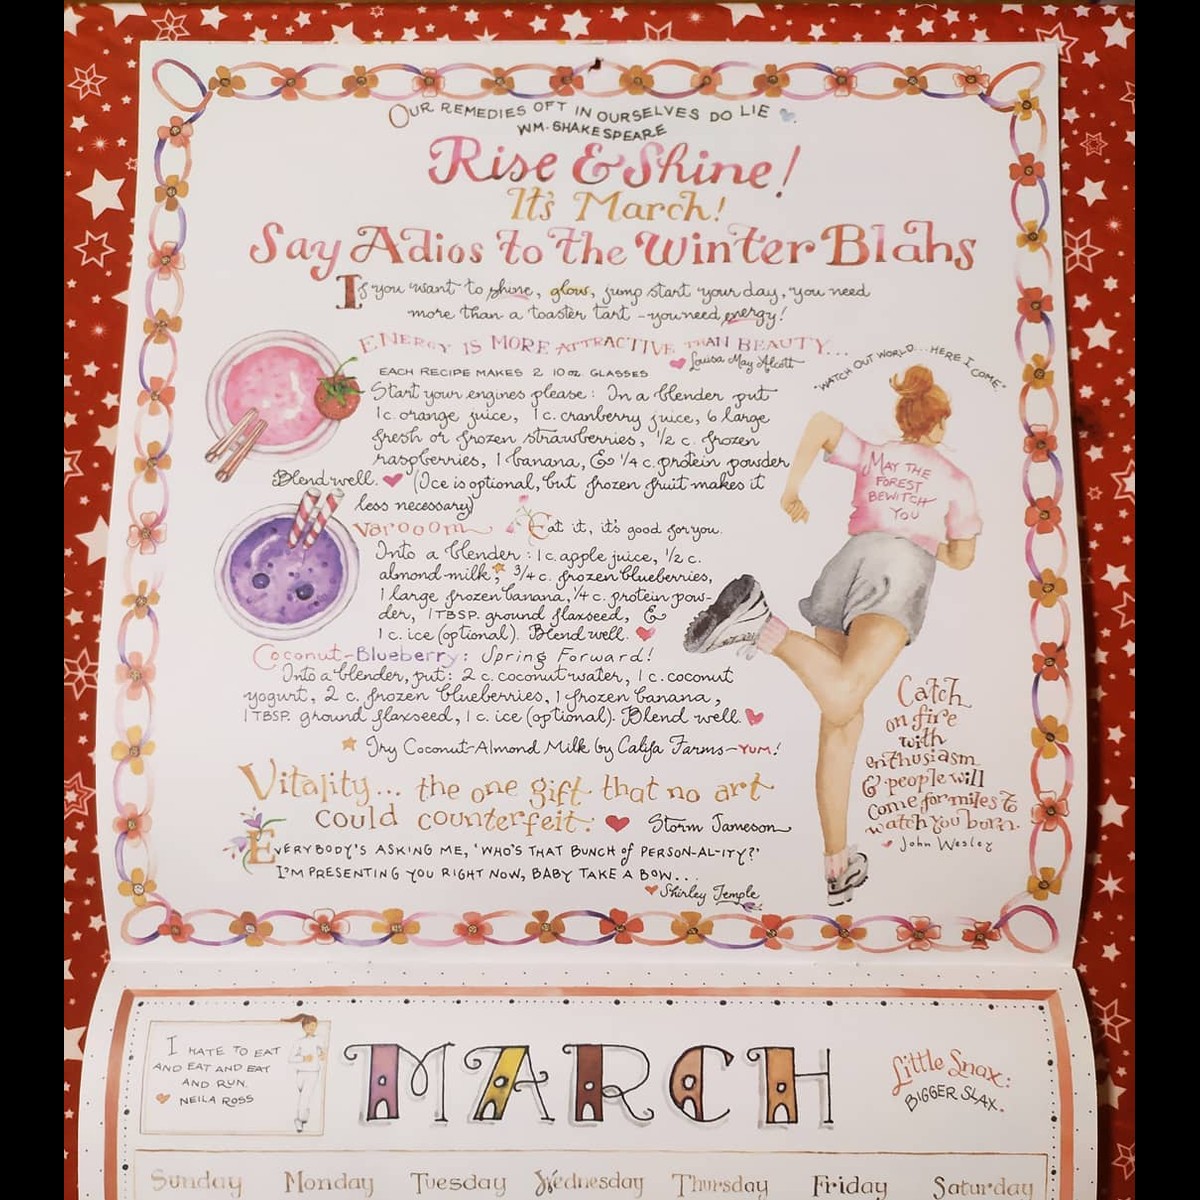 OUR REMEDIES OFT IN OURSELVES DO LIE
WM. SHAKESPEARE
Rise & Shine!
It's March!
Say Adios to the Winter Blahs
If you want to shine, glow, jump start your day, you need
more than a toaster tart - you need energy!
ENERGY IS MORE ATTRACTIVE THAN BEAUTY...
Louisa May Alcott
EACH RECIPE MAKES 2 10 oz. GLASSES
Start your engines please: In a blender put
1 c. orange juice, 1 c. cranberry juice, 6 large
fresh or frozen strawberries, 1/2 c. frozen
raspberries, 1 banana, & 1/4 c. protein powder
Blend well. (Ice is optional, but frozen fruit makes it
less necessary)
Varooom Eat it, it's good for you.
Into a blender: 1 c. apple juice, 1/2 c.
almond milk, 3/4 c. frozen blueberries,
1 large frozen banana, 1/4 c. protein pow-
der, 1 TBSP. ground flaxseed, &
1 c. ice (optional). Blend well.
Coconut-Blueberry: Spring Forward!
Into a blender, put: 2 c. coconut water, 1 c. coconut
yogurt, 2 c. frozen blueberries, 1 frozen banana,
1 TBSP. ground flaxseed, 1 c. ice (optional). Blend well.
Try Coconut-Almond Milk by Califa Farms - YUM!
Vitality... the one gift that no art
could counterfeit. Storm Jameson
EVERYBODY'S ASKING ME, 'WHO'S THAT BUNCH of PERSON-AL-ITY?'
I'M PRESENTING YOU RIGHT NOW, BABY TAKE A BOW...
Shirley Temple
"WATCH OUT WORLD...HERE I COME"
MAY THE
FOREST
BEWITCH
YOU
Catch
on fire
with
enthusiasm
& people will
come for miles to
watch you burn.
John Wesley
I HATE TO EAT
AND EAT AND EAT
AND RUN.
NEILA ROSS
MARCH
Little Snax:
BIGGER SLAX.
Sunday Monday Tuesday Wednesday Thursday Friday Saturday